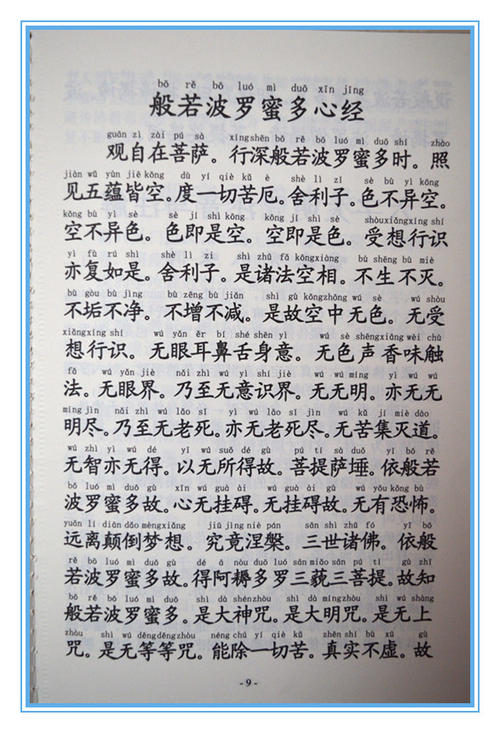 bō rě bō luó mì duō xīn jīng
般若波罗蜜多心经
guān zì zài pú sà xíngshēn bō rě bō luó mì duō shí zhào
观自在菩萨。行深般若波罗蜜多时。照
jiàn wǔ yùn jiē kōng dù yí qiè kǔ è shè lì zǐ sè bù yì kōng
见五蕴皆空。度一切苦厄。舍利子。色不异空。
kōng bù yì sè sè jí shì kōng kōng jí shì sè shòuxiǎngxíng shí
空不异色。色即是空。空即是色。受想行识
yì fù rú shì shè lì zǐ shì zhū fǎ kōngxiàng bù shēng bù miè
亦复如是。舍利子。是诸法空相。不生不灭。
bù gòu bù jìng bù zēng bù jiǎn shì gù kōngzhōng wú sè wú shòu
不垢不净。不增不减。是故空中无色。无受
xiǎngxíng shí wú yǎn ěr bí shé shēn yì wú sè shēngxiāng wèi chù
想行识。无眼耳鼻舌身意。无色声香味触
fǎ wú yǎn jiè nǎi zhì wú yì shí jiè wú wú míng yì wú wú
法。无眼界。乃至无意识界。无无明。亦无无
míng jìn nǎi zhì wú lǎo sǐ yì wú lǎo sǐ jìn wú kǔ jí miè dào
明尽。乃至无老死。亦无老死尽。无苦集灭道。
wú zhì yì wú dé yǐ wú suǒ dé gù pú tí sà duǒ yī bō rě
无智亦无得。以无所得故。菩提萨埵。依般若
bō luó mì duō gù xīn wú guà ài wú guà ài gù wú yǒu kǒng bù
波罗蜜多故。心无挂碍。无挂碍故。无有恐怖。
yuǎn lí diān dǎo mèngxiǎng jiū jìng niè pán sān shì zhū fó yī bō
远离颠倒梦想。究竟涅槃。三世诸佛。依般
rě bō luó mì duō gù dé ā nòu duō luó sānmiǎo sān pú tí gù zhī
若波罗蜜多故。得阿耨多罗三藐三菩提。故知
bō rě bō luó mì duō shì dà shénzhòu shì dà míngzhòu shì wú shàng
般若波罗蜜多。是大神咒。是大明咒。是无上
zhòu shì wú děngděngzhòu néng chú yí qiè kǔ zhēn shí bù xū gù
咒。是无等等咒。能除一切苦。真实不虚。故
- 9 -